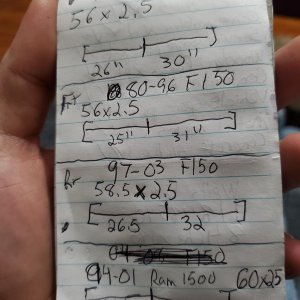 56 x 2.5
26" 30"
80-96 F150
56x2.5
25" 31"
97-03 F150
58.5 x 2.5
26.5 32
04-08 F150
94-01 Ram 1500 60x25